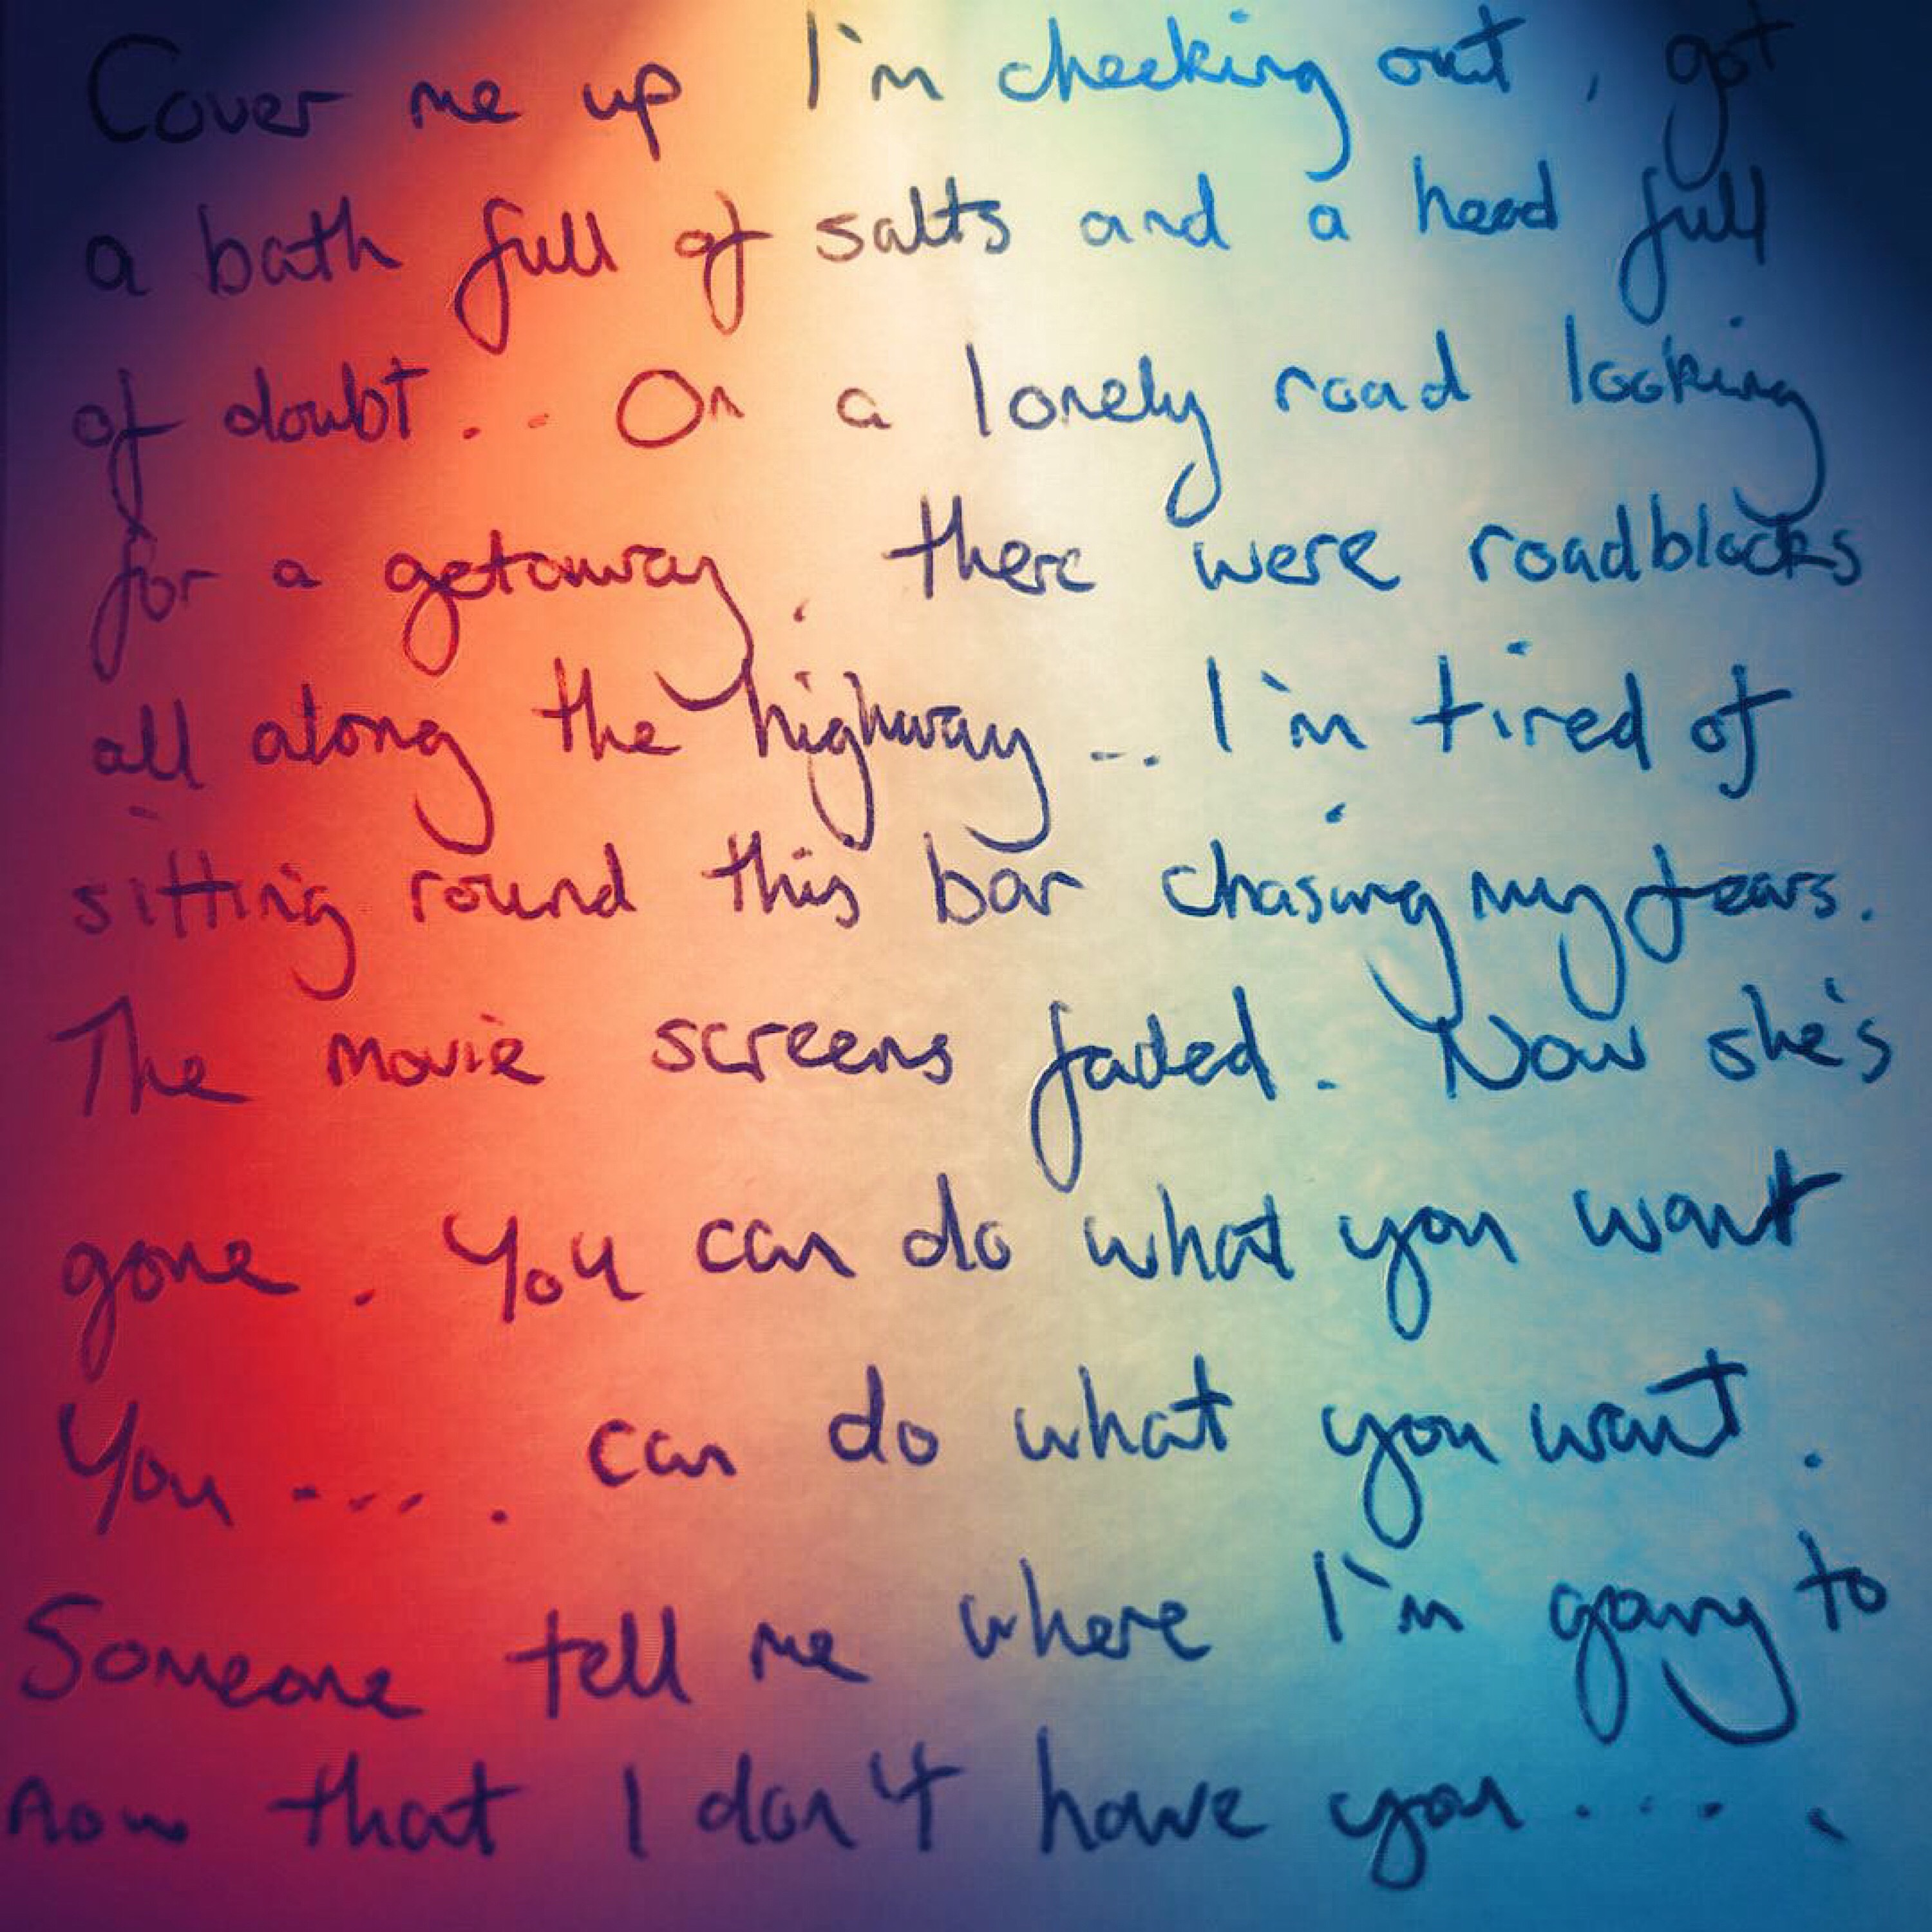 Cover me up I'm checking out, got
a bath full of salts and a head full
of doubt... On a lonely road looking
for a getaway. there were roadblocks
all along the highway... I'm tired of
sitting round this bar chasing my tears.
The movie screens faded. Now she's
gone. You can do what you want
You ..... can do what you want.
Someone tell me where I'm going to
now that I don't have you.....